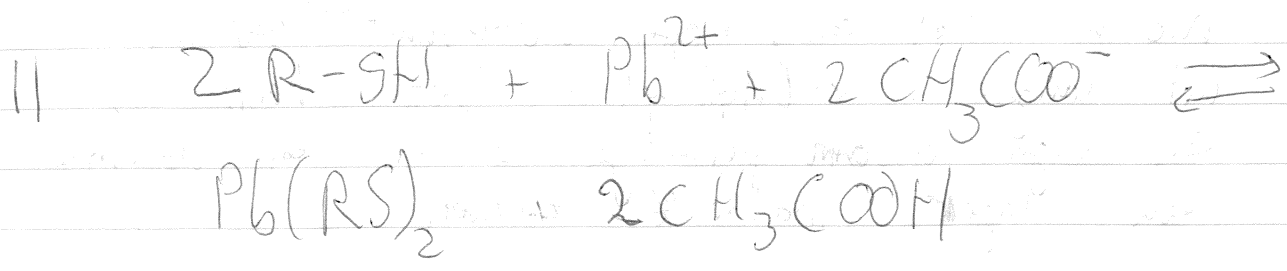 11 2 R-SH + Pb²⁺ + 2 CH₃COO⁻ ⇌
Pb(RS)₂ + 2 CH₃COOH